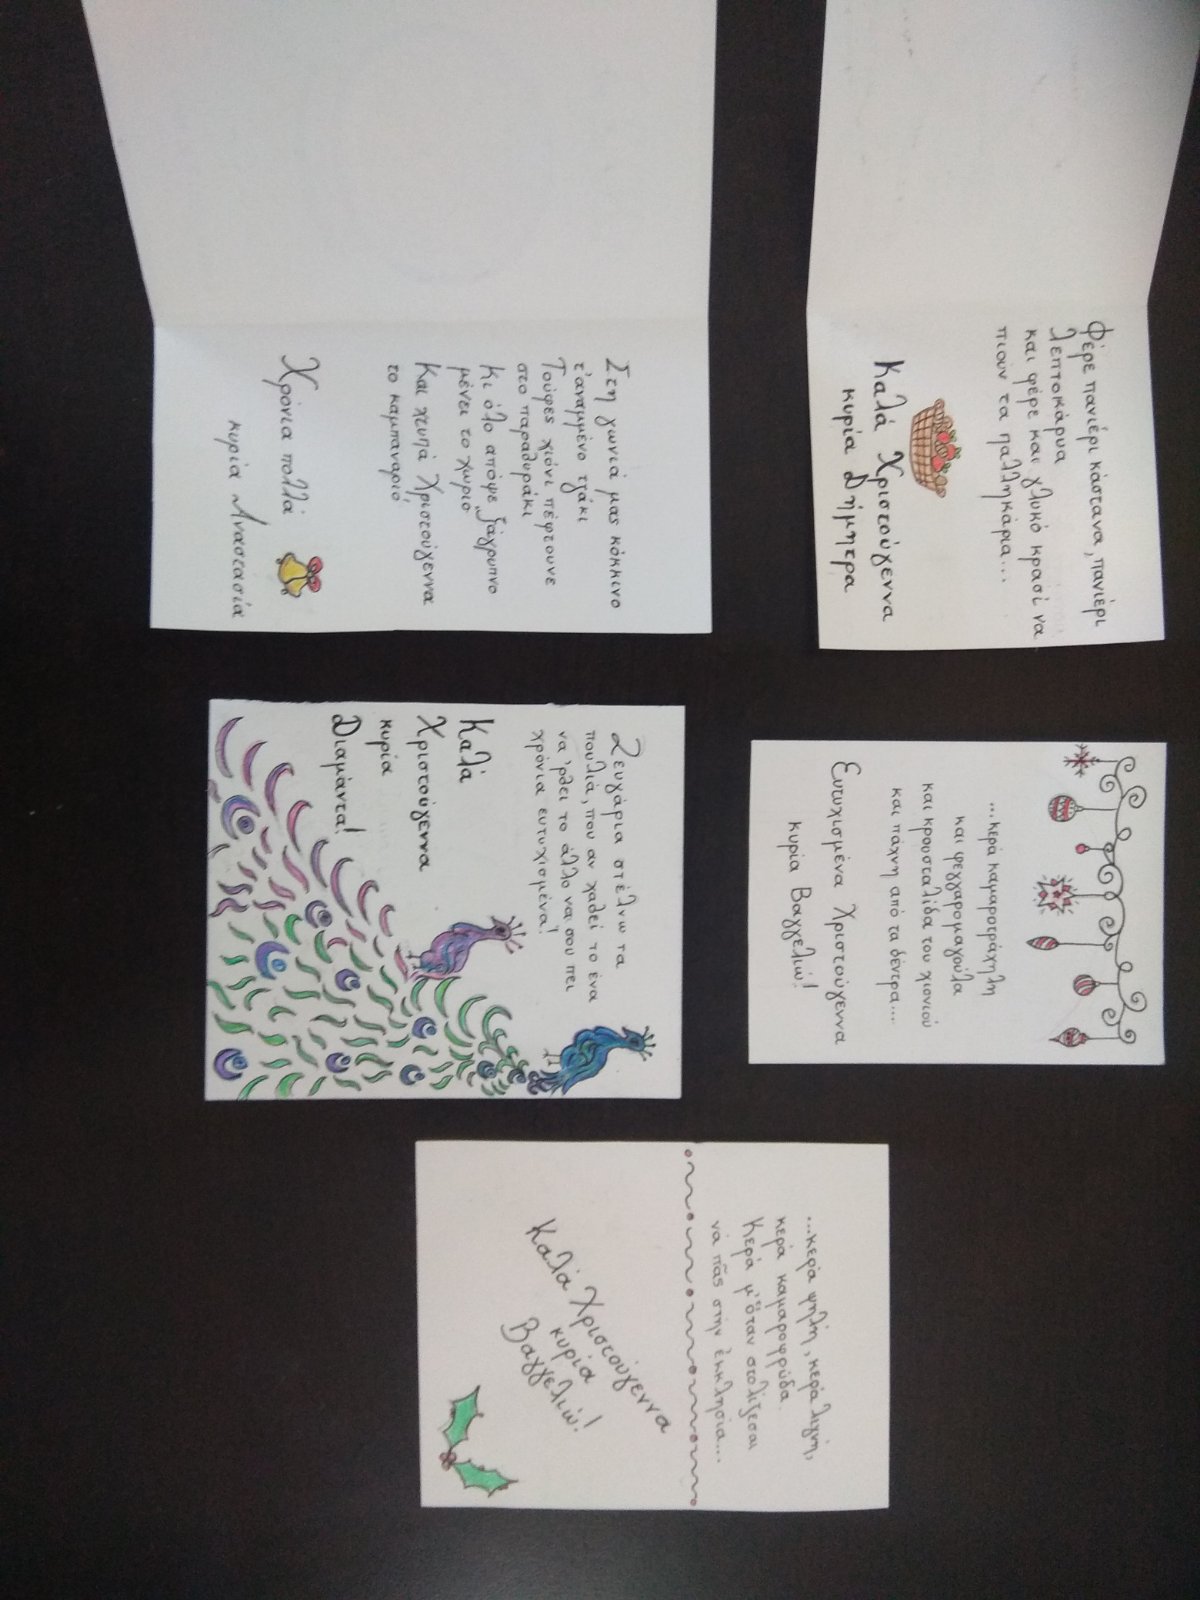 Φέρε πανιέρι κάστανα, πανιέρι
λεπτοκάρυα
και φέρε και γλυκό κρασί να
πιουν τα παλληκάρια...
Καλά Χριστούγεννα
κυρία Δήμητρα
...κερά καμαροτράχηλη
και φεγγαρομαγούλα
και κρουσταλίδα του χιονιού
και πάχνη από τα δέντρα...
Ευτυχισμένα Χριστούγεννα
κυρία Βαγγελιώ!
...κερά ψηλή, κερά λιγνή,
κερά καμαροφρύδα.
Κερά μ' ὅταν στολίζεσαι
νὰ πᾶς στὴν ἐκκλησία...
Καλά Χριστούγεννα
κυρία
Βαγγελιώ!
Στη γωνιά μας κόκκινο
τ'αναμμένο τζάκι
Τούφες χιόνι πέφτουνε
στο παραθυράκι
Κι όλο απόψε ξάγρυπνο
μένει το χωριό
Και χτυπά Χριστούγεννα
το καμπαναριό
Χρόνια πολλά
κυρία Αναστασία
Ζευγάρια στέλνω τα
πουλιά, που αν χαθεί το ένα
να 'ρθει το άλλο να σου πει
χρόνια ευτυχισμένα!
Καλά
Χριστούγεννα
κυρία
Διαμάντα!